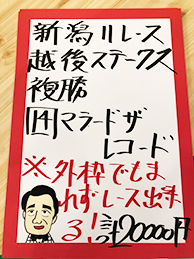 新潟11レース
越後ステークス
複勝
14マラードザ
レコード
※外枠でもま
れずレース出来
る！計20000円